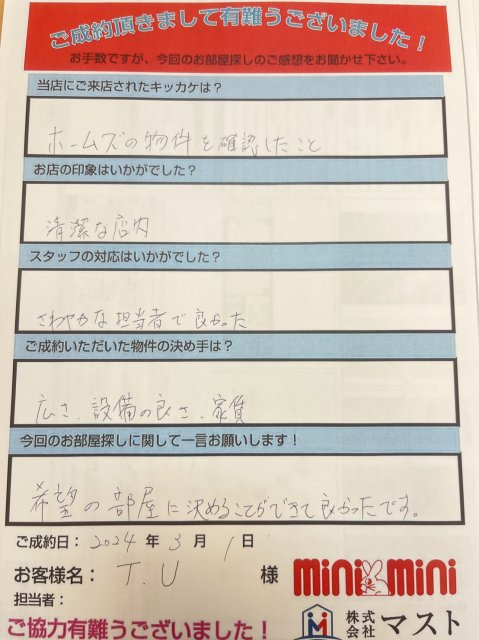 ご成約頂きまして有難うございました！
お手数ですが、今回のお部屋探しのご感想をお聞かせ下さい。
当店にご来店されたキッカケは？
ホームズの物件を確認したこと
お店の印象はいかがでした？
清潔な店内
スタッフの対応はいかがでした？
さわやかな担当者で良かった
ご成約いただいた物件の決め手は？
広さ、設備の良さ、家賃
今回のお部屋探しに関して一言お願いします！
希望の部屋に決めることができて良かったです。
ご成約日： 2024 年 3 月 1 日
お客様名： T.U 様
担当者：
ご協力有難うございました！
mini mini
株式会社 マスト